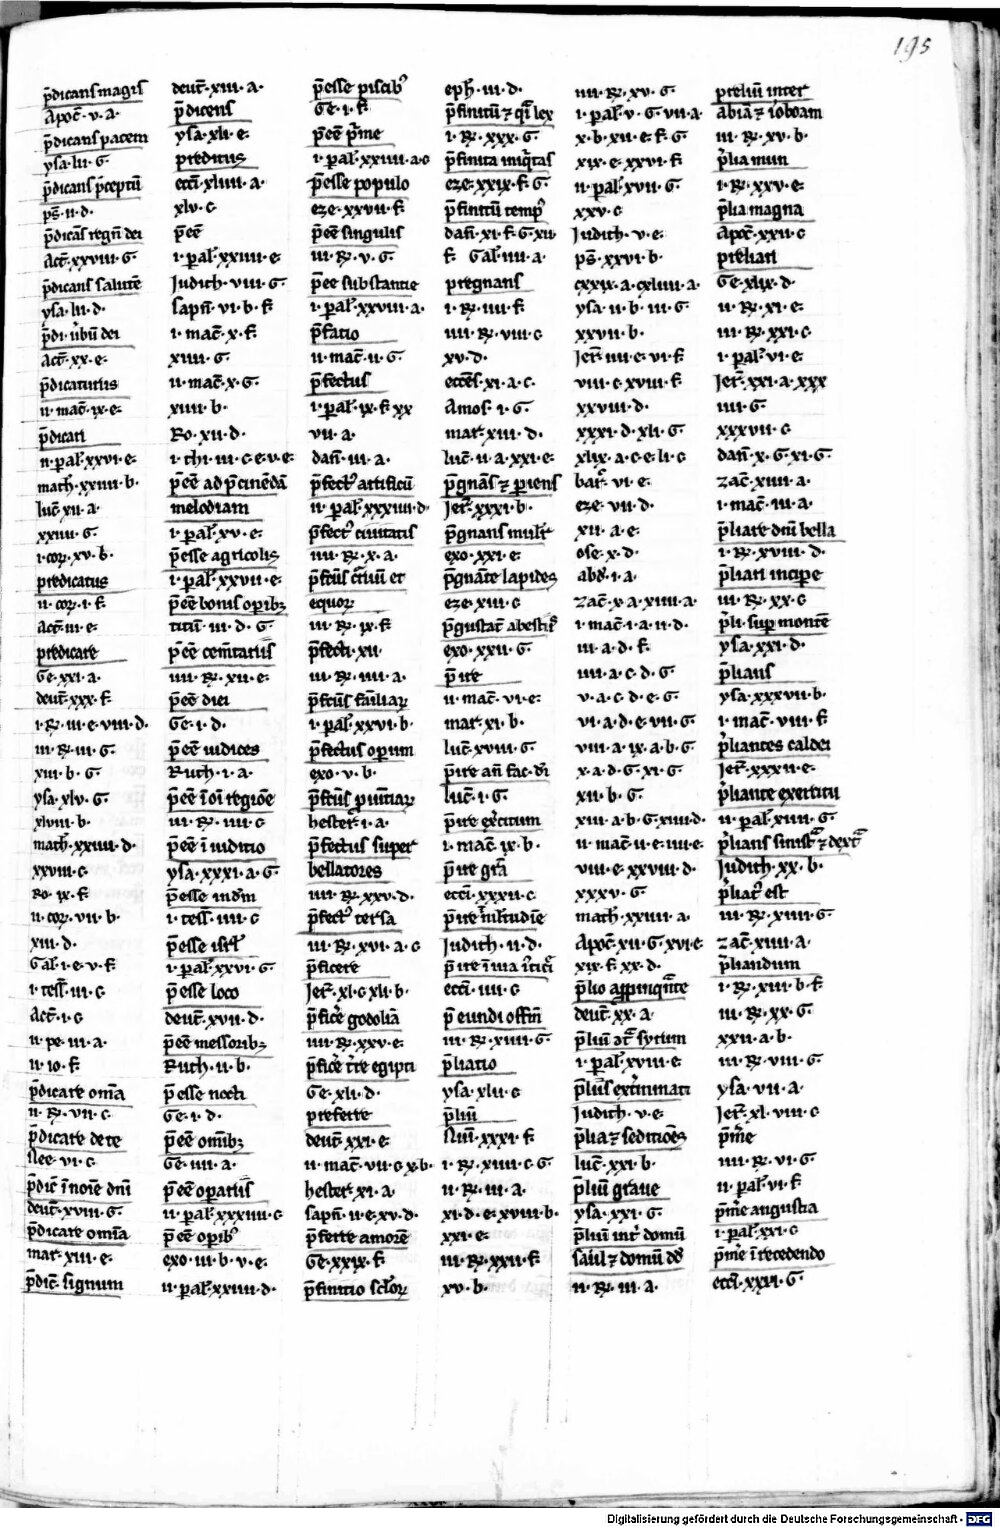 195
p̄dicans magis
Apoc̄·v·a·
p̄dicans pacem
ysa·lii·G·
p̄dicans p̄ceptū
ps̄·ii·d·
p̄dicās regn̄ dei
Act̄·xxviii·G·
p̄dicans salutē
ysa·lii·d·
p̄di· ubū dei
Act̄·xx·e·
p̄dicaturus
ii·mac̄·ix·e·
p̄dicari
ii·pal̄·xxvi·e·
math̄·xxiiii·b·
luc̄·xii·a·
xxiiii·G·
i·cor̄·xv·b·
predicatus
ii·cor̄·i·f·
Act̄·iii·e·
predicare
Ge·xxi·a·
deut̄·xxx·f·
i·R̄·iii·e·viii·d·
iii·R̄·iii·G·
xiii·b·G·
ysa·xlv·G·
xlviii·b·
math̄·xxiiii·d·
xxviii·c·
Ro·ix·f·
ii·cor̄·vii·b·
xiii·d·
Gal̄·i·e·v·f·
i·tess̄·iii·c
Act̄·i·c
ii·pe·iii·a·
ii·io·f·
p̄dicare omīa
ii·R̄·vii·c
p̄dicare de te
Nee·vi·c
p̄dic̄ ī noīe dn̄i
deut̄·xviii·G·
p̄dicare omīa
mar̄·xiii·e·
p̄dic̄ signum
deut̄·xiii·a·
p̄dicens
ysa·xli·e·
preditus
ecci·xliiii·a·
xlv·c
p̄eē
i·pal̄·xxiiii·e
Judich·viii·G·
sapn̄·vi·b·f
i·mac̄·x·f·
xiiii·G·
ii·mac̄·x·G·
xiiii·b·
Ro·xii·d·
i·thi·iii·c·e·v·e
p̄eē ad p̄cinendā
melodiam
i·pal̄·xv·e·
p̄esse agricolis
i·pal̄·xxvii·e·
p̄eē bonis opibꝫ
titū·iii·d·G·
p̄eē cemtariis
iiii·R̄·xii·e·
p̄eē diei
Ge·i·d·
p̄eē iudices
Ruth·i·a·
p̄eē ī oī regiōe
iii·R̄·iiii·c
p̄eē ī iuditio
ysa·xxxi·a·G·
p̄esse ind̄m
i·tess̄·iiii·c
p̄esse isrl̄
i·pal̄·xxvi·G·
p̄esse loco
deut̄·xvii·d·
p̄eē messoribꝫ
Ruth·ii·b·
p̄esse nocti
Ge·i·d·
p̄eē omībꝫ
Ge·iiii·a·
p̄eē opariis
ii·pal̄·xxxiiii·c
p̄eē opibꝰ
exo·iii·b·v·e·
ii·pal̄·xxiiii·d·
p̄esse piscibꝰ
Ge·i·f
p̄eē p̄me
i·pal̄·xxiiii·a·c
p̄esse populo
eze·xxvii·f·
p̄eē singulis
iii·R̄·v·G·
p̄ee substantie
i·pal̄·xxviii·a·
p̄fatio
ii·mac̄·ii·G·
p̄fectus
i·pal̄·ix·f·xx
vii·a·
dan̄·iii·a·
p̄fectꝰ artificū
ii·pal̄·xxxiiii·d·
p̄fectꝰ ciuitatis
iiii·R̄·x·a·
equoꝝ
iii·R̄·ix·f·
p̄fecti·xii·
iii·R̄·iiii·a·
p̄fcūs familiaꝝ
i·pal̄·xxvi·b·
p̄fectus opum
exo·v·b·
p̄fcūs puītiaꝝ
hester·i·a·
p̄fectus super
bellatores
iiii·R̄·xxv·d·
p̄fectꝰ tersa
iii·R̄·xvi·a·c
p̄ficere
Jer̄·xl·c xli·b·
p̄fic̄e godoliā
iiii·R̄·xxv·e·
p̄fic̄e t̄re egipti
Ge·xli·d·
preferre
deut̄·xxi·e·
ii·mac̄·vii·c x·b·
hester·xi·a·
sapn̄·ii·e·xv·d·
p̄ferre amorē
Ge·xxix·f·
p̄finitio sc̄loꝝ
eph̄·iii·d·
p̄finitū ⁊ qͥ lex
i·R̄·xxx·G·
p̄finita iniqͥtas
eze·xxix·f·G·
p̄finitū tempꝰ
dan̄·xi·f·G·xii·
f· Gal̄·iiii·a·
pregnans
i·R̄·iiii·f·
iiii·R̄·viii·c
xv·d·
ecces̄·xi·a·c·
Amos·i·G·
mat̄·xiii·d·
luc̄·ii·a·xxi·e·
p̄gnās ⁊ pariens
Jer̄·xxxi·b·
p̄gnans mulr̄
exo·xxi·e·
p̄gnāte lapides
eze·xiii·c
exo·xxii·G·
p̄ire
ii·mac̄·vi·e·
mar̄·xi·b·
luc̄·xviii·G·
p̄ire an̄ fac·dn̄i
luc̄·i·G·
p̄ire ex̄citum
i·mac̄·ix·b·
p̄ire gr̄a
ecci·xxxii·c
p̄ire ml̄titudīe
Judich·ii·d·
ecci·iiii·c
p̄eundi offm̄
iii·R̄·xiiii·G·
p̄liatio
ysa·xlii·e
p̄liū
Nūi·xxxi·f·
i·R̄·xiiii·c·G·
ii·R̄·iii·a·
xi·d·e·xviii·b·
xxi·e·
iii·R̄·xxii·f·
xv·b·
iiii·R̄·xv·G·
i·pal̄·v·G·vii·a·
x·b·xii·e·f·G·
xix·e·xxvi·f·
ii·pal̄·xvii·G·
xxv·c
Judich·v·e·
ps̄·xxvi·b·
cxxix·a·cxliii·a·
ysa·ii·b·iii·G·
xxvii·b·
Jer̄·iiii·e·vi·f·
viii·c·xviii·f·
xxviii·d·
xxxi·d·xli·G·
xlix·a·c·e·li·c
bar̄·vi·e·
eze·vii·d·
xii·a·e·
ose·x·d·
abd̄·i·a·
zac̄·x·a·xiiii·a·
i·mac̄·i·a·ii·d·
iii·a·d·f·
iiii·a·c·d·G·
v·a·c·d·e·G·
vi·a·d·e·vii·G·
viii·a·ix·a·b·G·
x·a·d·G·xi·G·
xii·b·G·
xiii·a·b·G·xiiii·d·
ii·mac̄·ii·e·iiii·e·
viii·e·xxviii·d·
xxxv·G·
math̄·xxiiii·a·
Apoc̄·xii·G·xvi·e
xix·f·xx·d·
p̄lio appinqͣnte
deut̄·xx·a·
p̄liū ꝯt̄ syrum
i·pal̄·xviii·e·
p̄liūs ext̄minati
Judich·v·e·
p̄lia ⁊ seditiōes
luc̄·xxi·b·
p̄liū graue
ysa·xxi·G·
p̄liū int̄ domū
saul ⁊ domū dd̄
ii·R̄·iii·a·
prelium inter
abia ⁊ ioboam
iii·R̄·xv·b·
p̄lia mun
i·R̄·xxv·e·
p̄lia magna
Apoc̄·xxii·c
preliari
Ge·xlix·d·
ii·R̄·xi·e·
iii·R̄·xxi·c
i·pal̄·vi·e·
Jer̄·xxi·a·xxx
iiii·G·
xxxvii·c
dan̄·x·G·xi·G·
zac̄·xiiii·a·
i·mac̄·iii·a·
p̄liare dnī bella
i·R̄·xviii·d·
p̄liari incipe
iii·R̄·xx·c
p̄li·sup montē
ysa·xxi·d·
p̄lians
ysa·xxxvii·b·
i·mac̄·viii·f
p̄liantes caldei
Jer̄·xxxii·e·
p̄liante exercitu
ii·pal̄·xiiii·G·
p̄lians sinistͣ ⁊ dextͣ
Judich·xx·b·
p̄liat̄ est
iii·R̄·xiiii·G·
zac̄·xiiii·a·
p̄liandum
i·R̄·xiii·b·f·
iii·R̄·xx·G·
xxii·a·b·
iii·R̄·viii·G·
ysa·vii·a·
Jer̄·xl·viii·c
p̄me
iiii·R̄·vi·G·
ii·pal̄·vi·f·
p̄me angustia
i·pal̄·xxi·c
p̄me ī recedendo
ecci·xxxi·G·
Digitalisierung gefördert durch die Deutsche Forschungsgemeinschaft - DFG